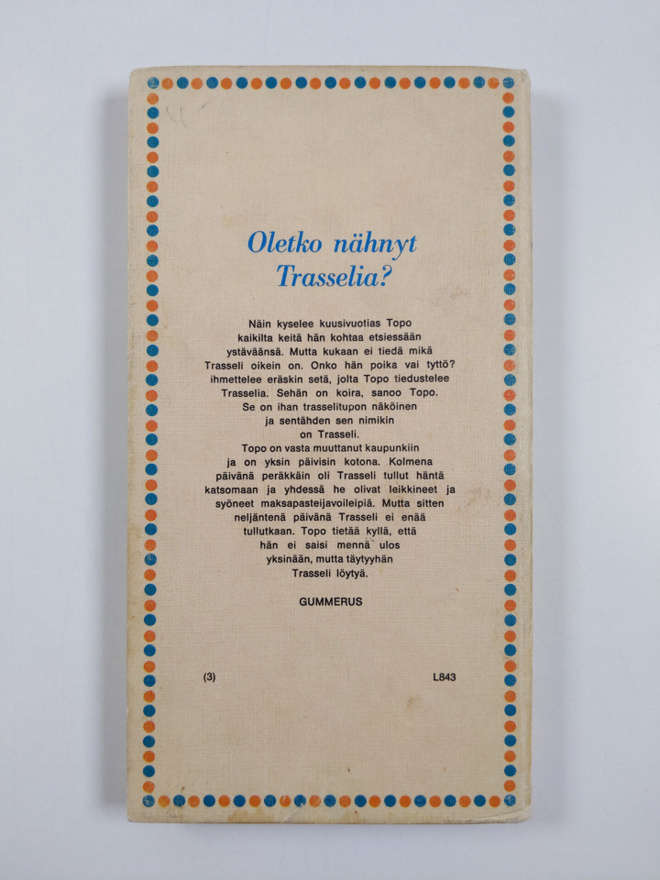 Oletko nähnyt
Trasselia?
Näin kyselee kuusivuotias Topo
kaikilta keitä hän kohtaa etsiessään
ystäväänsä. Mutta kukaan ei tiedä mikä
Trasseli oikein on. Onko hän poika vai tyttö?
ihmettelee eräskin setä, jolta Topo tiedustelee
Trasselia. Sehän on koira, sanoo Topo.
Se on ihan trasselitupon näköinen
ja sentähden sen nimikin
on Trasseli.
Topo on vasta muuttanut kaupunkiin
ja on yksin päivisin kotona. Kolmena
päivänä peräkkäin oli Trasseli tullut häntä
katsomaan ja yhdessä he olivat leikkineet ja
syöneet maksapasteijavoileipiä. Mutta sitten
neljäntenä päivänä Trasseli ei enää
tullutkaan. Topo tietää kyllä, että
hän ei saisi mennä ulos
yksinään, mutta täytyyhän
Trasseli löytyä.
GUMMERUS
(3) L843